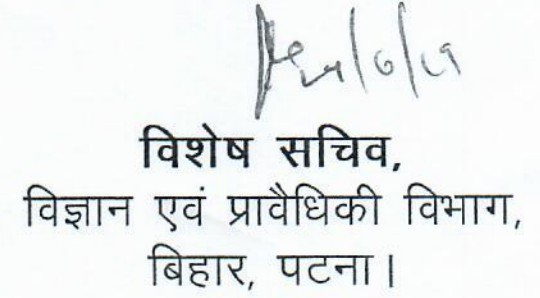 विशेष सचिव,
विज्ञान एवं प्रावैधिकी विभाग,
बिहार, पटना।